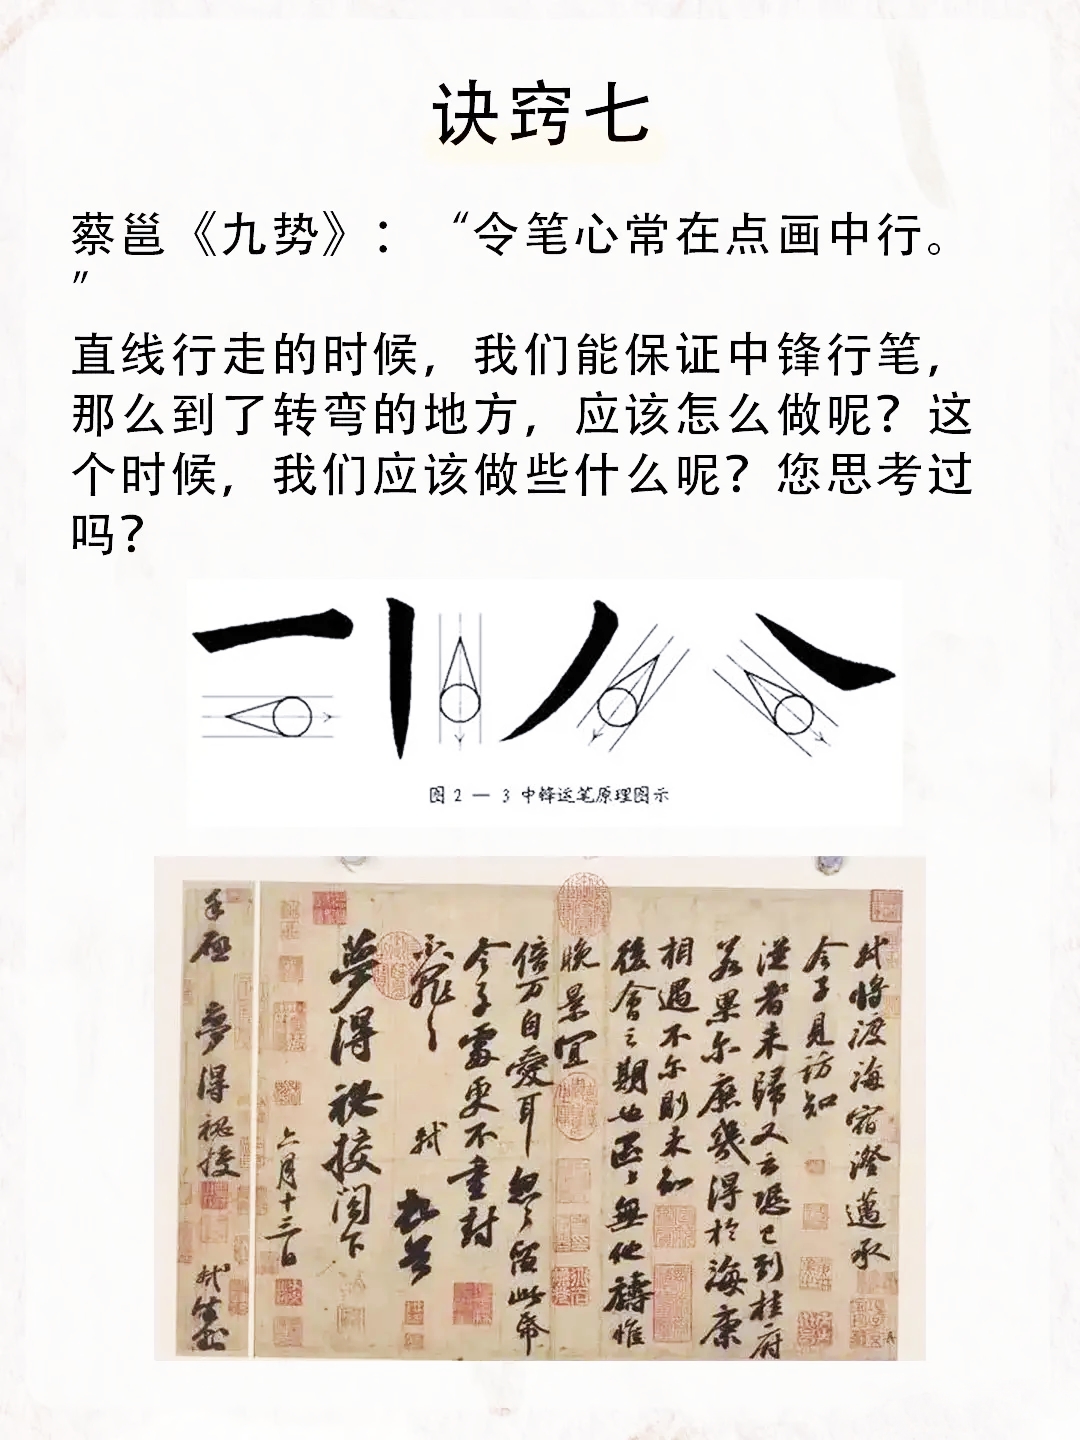 诀窍七
蔡邕《九势》：“令笔心常在点画中行。
”
直线行走的时候，我们能保证中锋行笔，
那么到了转弯的地方，应该怎么做呢？这
个时候，我们应该做些什么呢？您思考过
吗？
图 2 — 3 中锋运笔原理图示
軾將渡海宿澄邁承
令子見訪知
從者未歸又云恐已到桂府
若果尔庶幾得於海康
相遇不尔則未知
後會之期也區々無他禱惟
晚景宜
倍万自愛耳忽々留此帋
令子處更不重封
不罪々 軾頓首
夢得秘校閣下
六月十三日
手啟 夢得秘校 軾